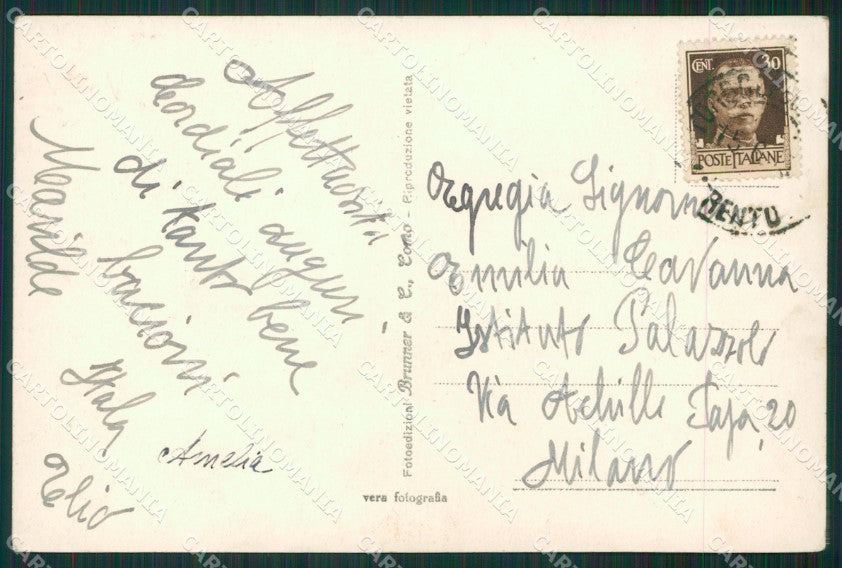 Affettuosità
cordiali auguri
di tanto bene
bacioni
Marilde
Italy
Elio
Amelia
Fotoedizioni Brunner & C., Como - Riproduzione vietata
vera fotografia
CENT. 30
POSTE ITALIANE
Egregia Signorina
Emilia Cavanna
Istituto Palazzolo
Via Achille Papa, 20
Milano
CARTOLINOMANIA